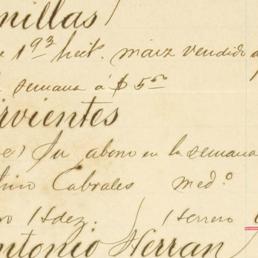 nillas
1 93 hect. maiz vendido a
semana á $5 00
rvientes
e) Su abono en la semana
ino Cabrales med.º
ro Hdez. 1 terreno
ntonio Herran